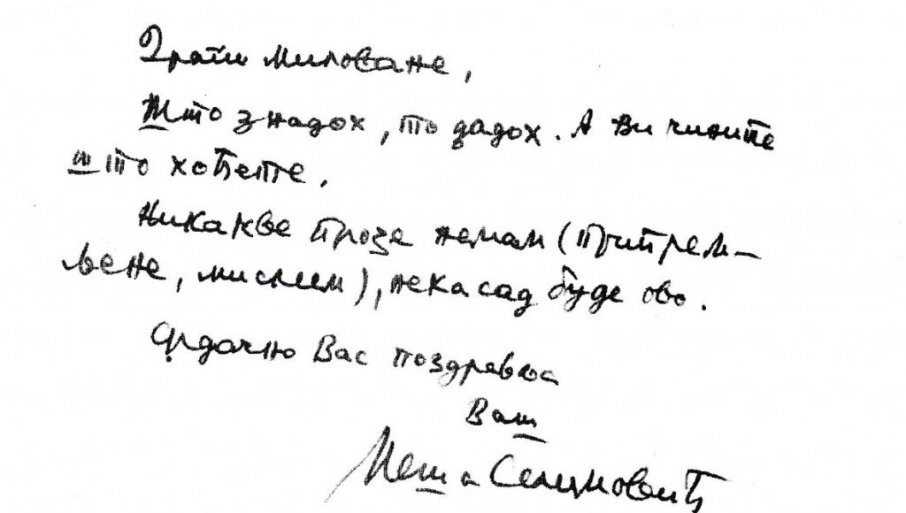 Драги Миловане,
Што знадох, то дадох. А Ви чините
што хоћете.
Никакве прозе немам (припрем-
љене, мислим), нека сад буде ово.
Срдачно Вас поздравља
Ваш
Меша Селимовић